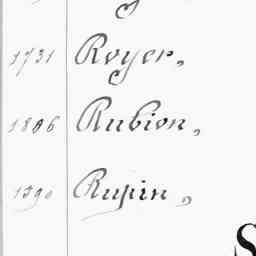 1731 Royer,
1806 Rubion,
1590 Rupin,
S